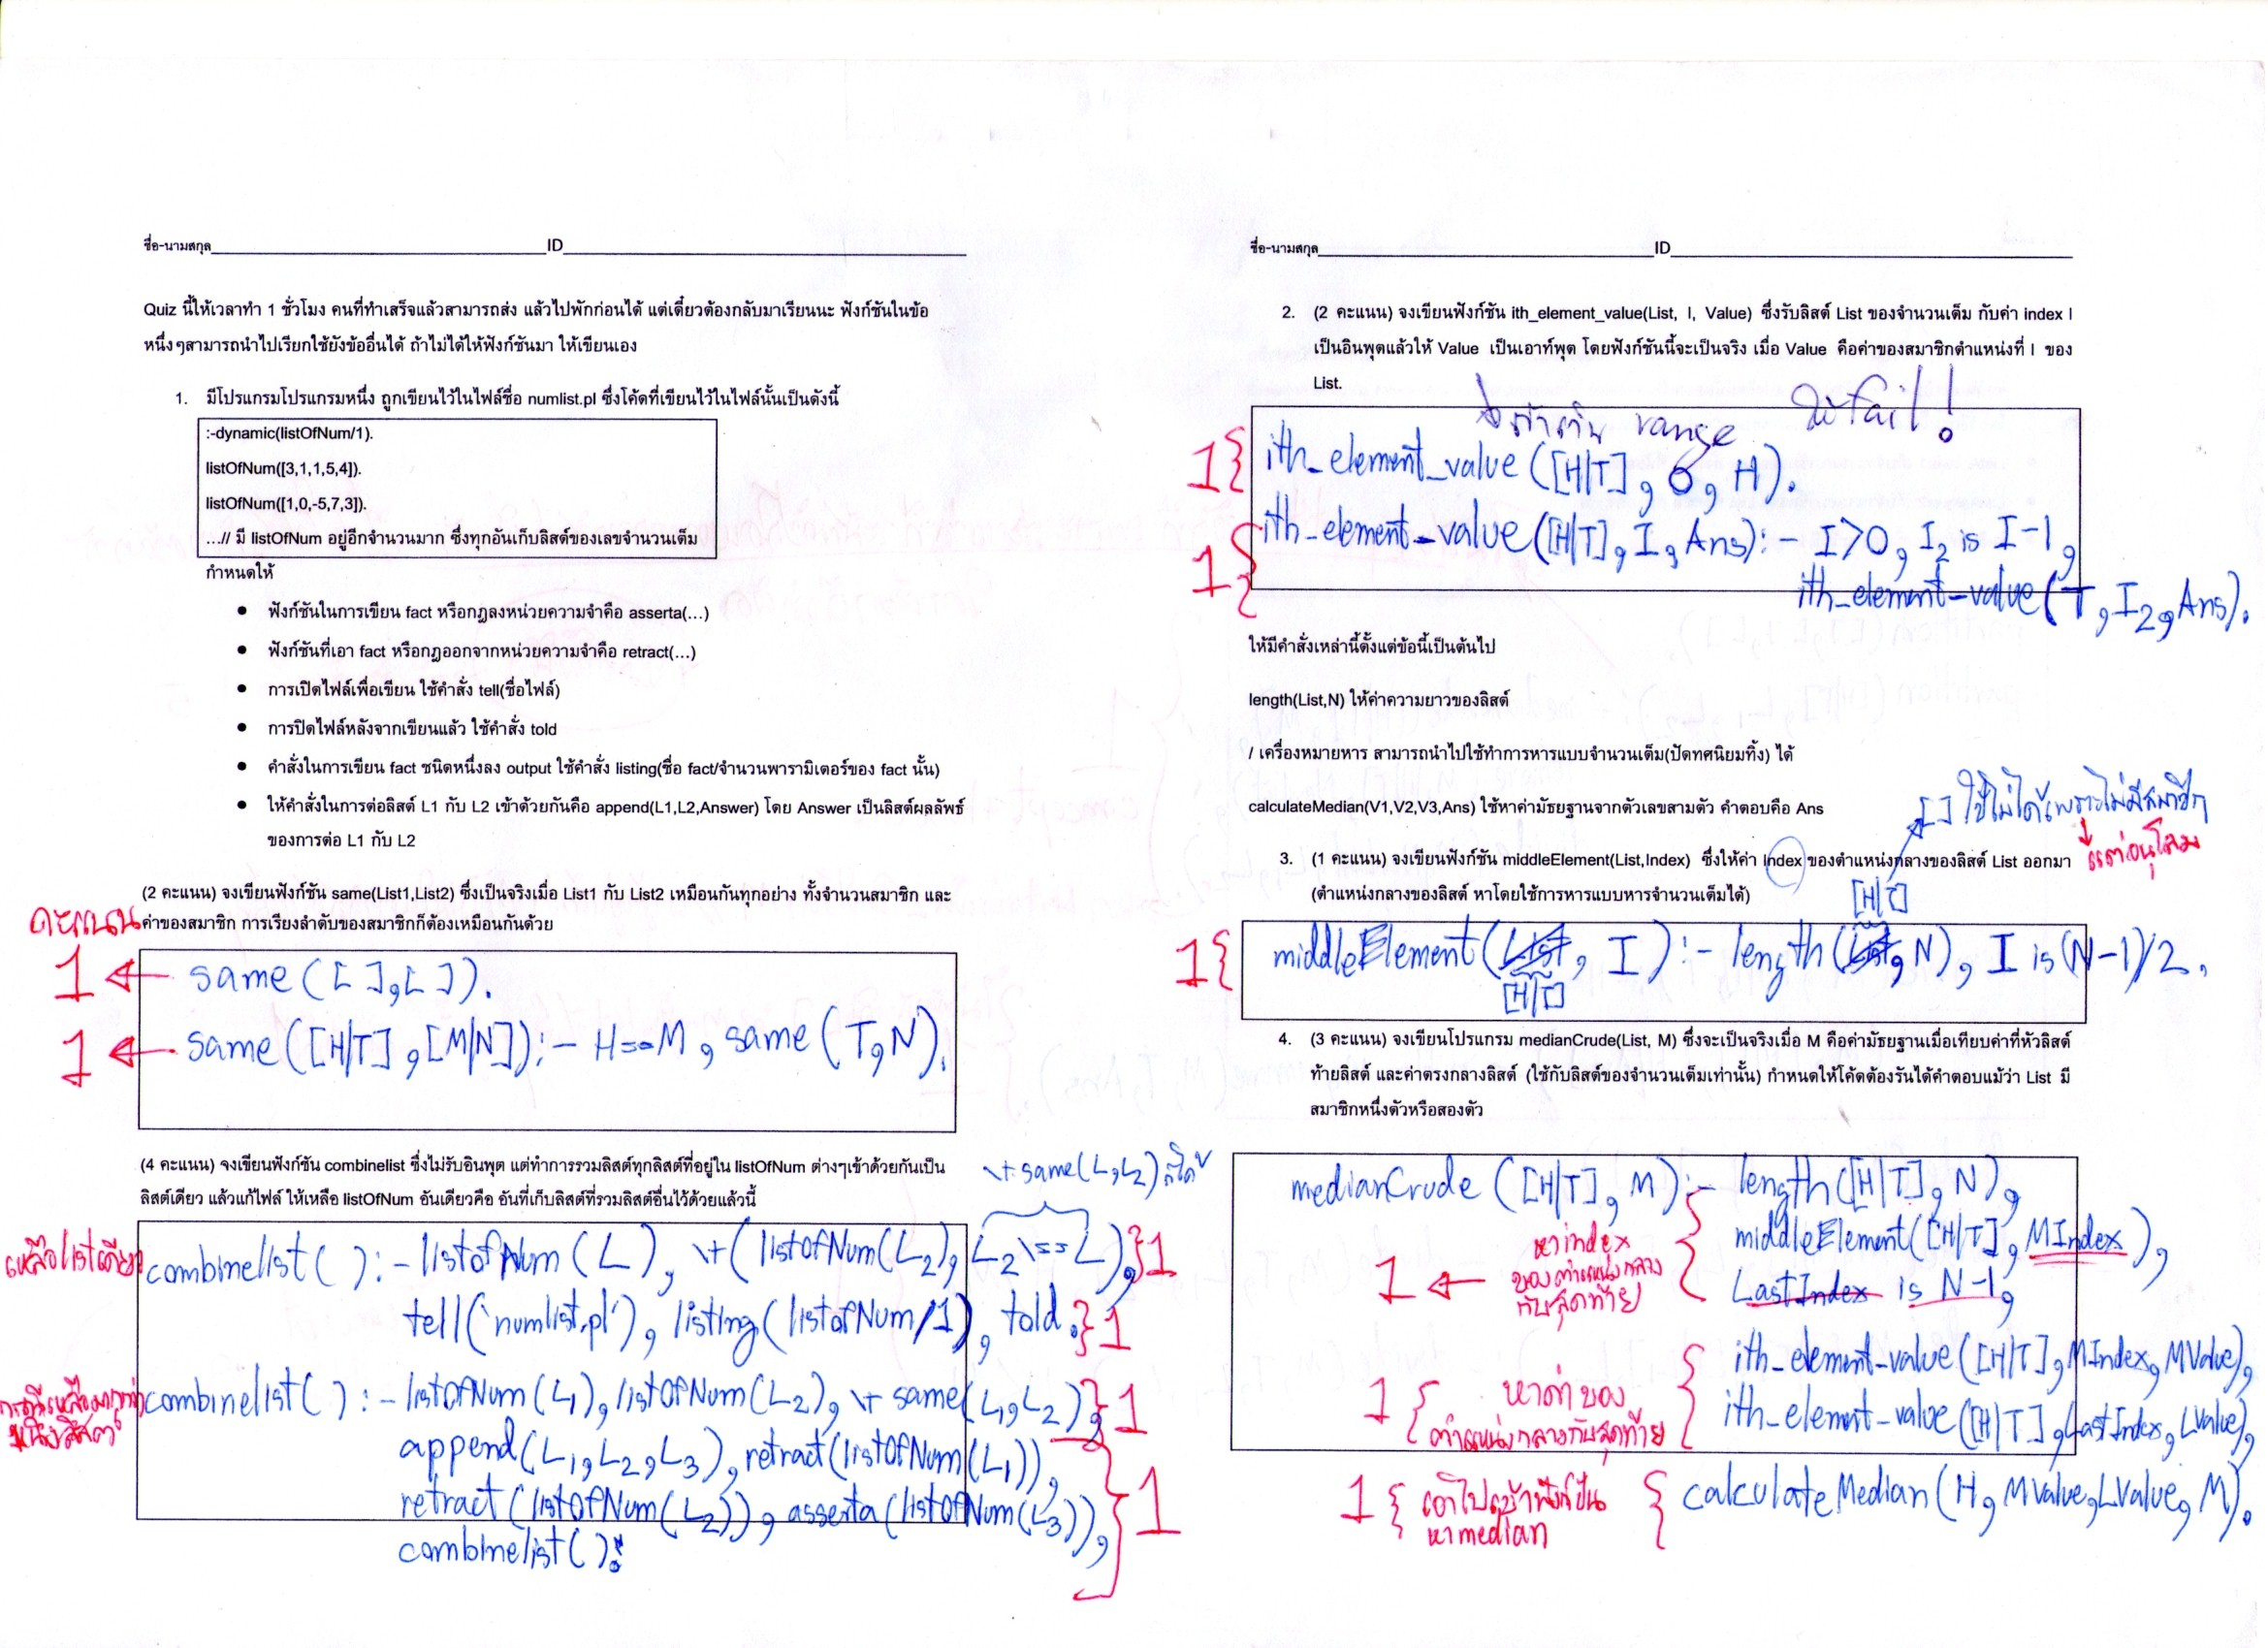 ชื่อ-นามสกุล ID
Quiz นี้ให้เวลาทำ 1 ชั่วโมง คนที่ทำเสร็จแล้วสามารถส่ง แล้วไปพักก่อนได้ แต่เดี๋ยวต้องกลับมาเรียนนะ ฟังก์ชันในข้อ
หนึ่งๆสามารถนำไปเรียกใช้ยังข้ออื่นได้ ถ้าไม่ได้ให้ฟังก์ชันมา ให้เขียนเอง
1. มีโปรแกรมโปรแกรมหนึ่ง ถูกเขียนไว้ในไฟล์ชื่อ numlist.pl ซึ่งโค้ดที่เขียนไว้ในไฟล์นั้นเป็นดังนี้
:-dynamic(listOfNum/1).
listOfNum([3,1,1,5,4]).
listOfNum([1,0,-5,7,3]).
...// มี listOfNum อยู่อีกจำนวนมาก ซึ่งทุกอันเก็บลิสต์ของเลขจำนวนเต็ม
กำหนดให้
● ฟังก์ชันในการเขียน fact หรือกฎลงหน่วยความจำคือ asserta(...)
● ฟังก์ชันที่เอา fact หรือกฎออกจากหน่วยความจำคือ retract(...)
● การเปิดไฟล์เพื่อเขียน ใช้คำสั่ง tell(ชื่อไฟล์)
● การปิดไฟล์หลังจากเขียนแล้ว ใช้คำสั่ง told
● คำสั่งในการเขียน fact ชนิดหนึ่งลง output ใช้คำสั่ง listing(ชื่อ fact/จำนวนพารามิเตอร์ของ fact นั้น)
● ให้คำสั่งในการต่อลิสต์ L1 กับ L2 เข้าด้วยกันคือ append(L1,L2,Answer) โดย Answer เป็นลิสต์ผลลัพธ์
ของการต่อ L1 กับ L2
(2 คะแนน) จงเขียนฟังก์ชัน same(List1,List2) ซึ่งเป็นจริงเมื่อ List1 กับ List2 เหมือนกันทุกอย่าง ทั้งจำนวนสมาชิก และ
คะแนน ค่าของสมาชิก การเรียงลำดับของสมาชิกก็ต้องเหมือนกันด้วย
1 same([],[]).
1 same([H|T],[M|N]):- H==M, same(T,N).
(4 คะแนน) จงเขียนฟังก์ชัน combinelist ซึ่งไม่รับอินพุต แต่ทำการรวมลิสต์ทุกลิสต์ที่อยู่ใน listOfNum ต่างๆเข้าด้วยกันเป็น
\+ same(L,L2) ก็ได้
ลิสต์เดียว แล้วแก้ไฟล์ ให้เหลือ listOfNum อันเดียวคือ อันที่เก็บลิสต์ที่รวมลิสต์อื่นไว้ด้วยแล้วนี้
เหลือ list เดียว combinelist():- listOfNum(L), \+(listOfNum(L2), L2\==L), 1
tell('numlist.pl'), listing(listOfNum/1), told. 1
combinelist():- listOfNum(L1), listOfNum(L2), \+ same(L1,L2), 1
append(L1,L2,L3), retract(listOfNum(L1)),
retract(listOfNum(L2)), asserta(listOfNum(L3)), 1
combinelist().
ชื่อ-นามสกุล ID
2. (2 คะแนน) จงเขียนฟังก์ชัน ith_element_value(List, I, Value) ซึ่งรับลิสต์ List ของจำนวนเต็ม กับค่า index I
เป็นอินพุตแล้วให้ Value เป็นเอาท์พุต โดยฟังก์ชันนี้จะเป็นจริง เมื่อ Value คือค่าของสมาชิกตำแหน่งที่ I ของ
List.
range ให้ fail!
1 ith_element_value([H|T], 0, H).
1 ith_element_value([H|T], I, Ans):- I>0, I2 is I-1,
ith_element_value(T, I2, Ans).
ให้มีคำสั่งเหล่านี้ตั้งแต่ข้อนี้เป็นต้นไป
length(List,N) ให้ค่าความยาวของลิสต์
/ เครื่องหมายหาร สามารถนำไปใช้ทำการหารแบบจำนวนเต็ม(ปัดทศนิยมทิ้ง) ได้
calculateMedian(V1,V2,V3,Ans) ใช้หาค่ามัธยฐานจากตัวเลขสามตัว คำตอบคือ Ans
[] ใช้ไม่ได้เพราะไม่มีสมาชิก
3. (1 คะแนน) จงเขียนฟังก์ชัน middleElement(List,Index) ซึ่งให้ค่า Index ของตำแหน่งกลางของลิสต์ List ออกมา
(ตำแหน่งกลางของลิสต์ หาโดยใช้การหารแบบหารจำนวนเต็มได้)
[H|T]
1 middleElement(List, I):- length(List, N), I is (N-1)/2.
[H|T]
4. (3 คะแนน) จงเขียนโปรแกรม medianCrude(List, M) ซึ่งจะเป็นจริงเมื่อ M คือค่ามัธยฐานเมื่อเทียบค่าที่หัวลิสต์
ท้ายลิสต์ และค่าตรงกลางลิสต์ (ใช้กับลิสต์ของจำนวนเต็มเท่านั้น) กำหนดให้โค้ดต้องรันได้คำตอบแม้ว่า List มี
สมาชิกหนึ่งตัวหรือสองตัว
medianCrude([H|T], M):- length([H|T], N),
หา index middleElement([H|T], MIndex),
1 ของตำแหน่งกลาง
กับสุดท้าย LastIndex is N-1,
ith_element_value([H|T], MIndex, MValue),
1 หาค่าของ
ตำแหน่งกลางกับสุดท้าย ith_element_value([H|T], LastIndex, LValue),
1 เอาไปเข้าฟังก์ชัน calculateMedian(H, MValue, LValue, M).
หา median